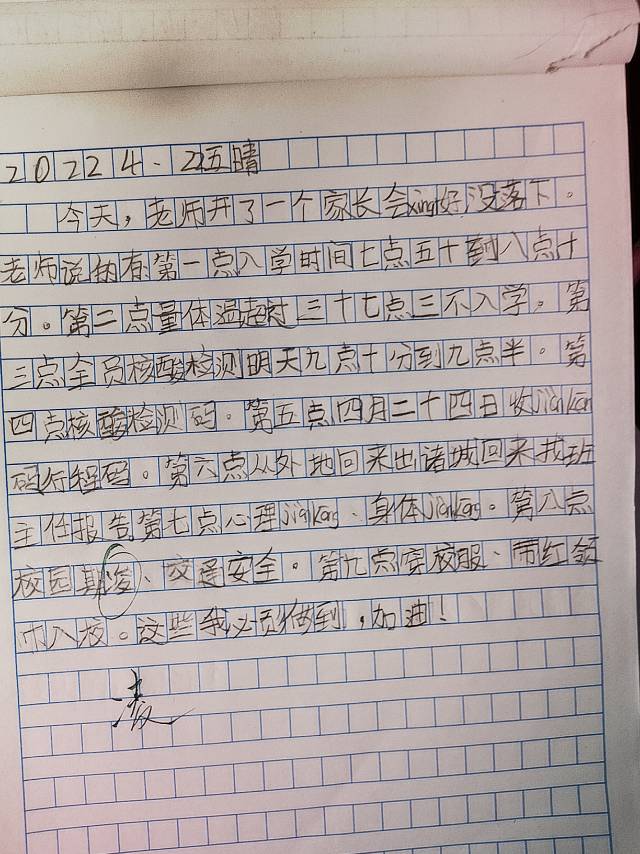 2022 4. 22五晴
今天，老师开了一个家长会xing好没落下。
老师说的有第一点入学时间七点五十到八点十
分。第二点量体温超过三十七点三不入学。第
三点全员核酸检测明天九点十分到九点半。第
四点核酸检测码。第五点四月二十四日收jiankan
码行程码。第六点从外地回来出诸城回来找班
主任报告第七点心理jiankang、身体jiankang。第八点
校园期凌、交通安全。第九点穿校服、带红领
巾入校。这些我必须做到，加油！
凌